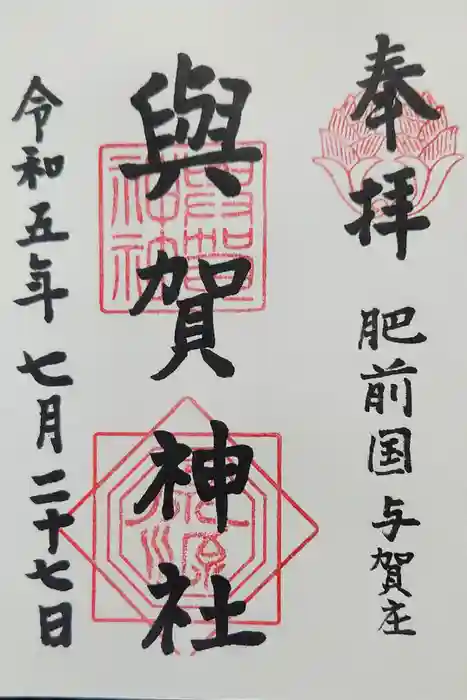 奉拝
肥前国与賀庄
與賀神社
令和五年七月二十七日